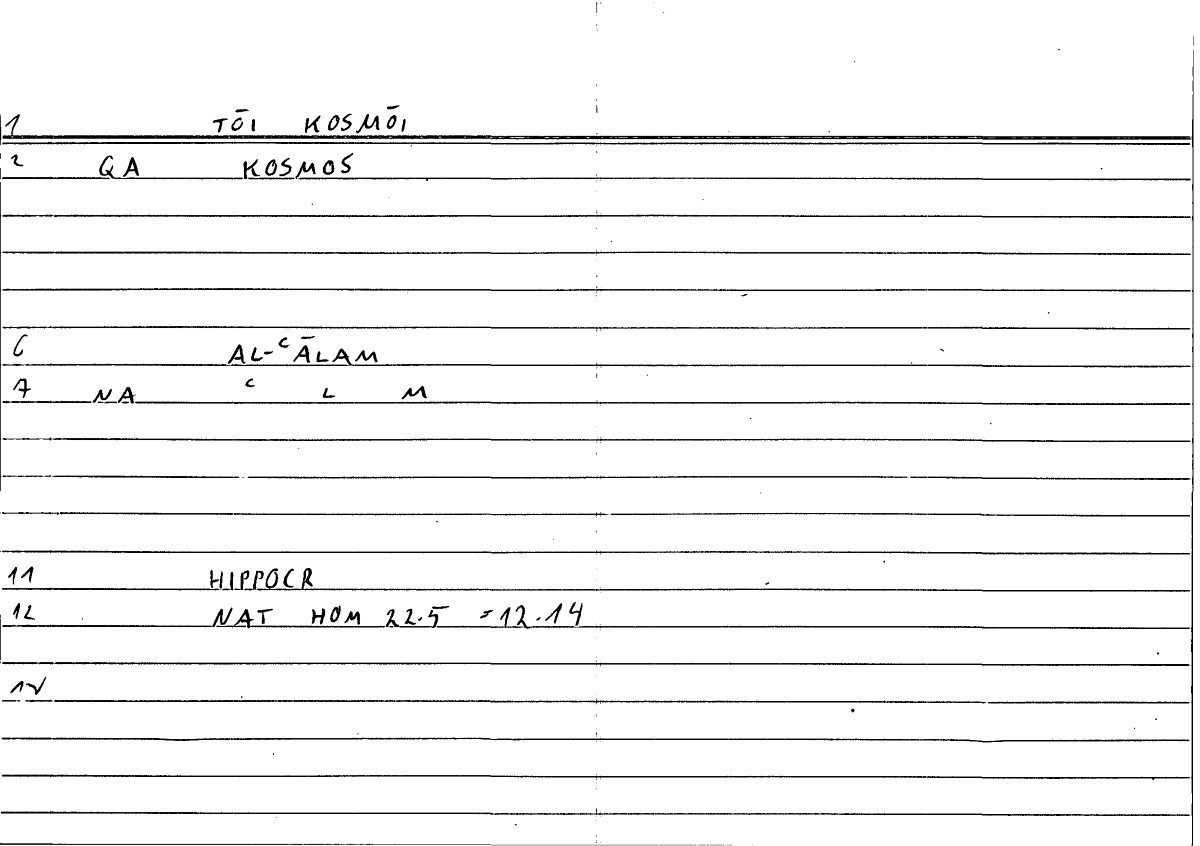 1 TŌI KOSMŌI
2 QA KOSMOS
6 AL-ᶜĀLAM
7 NA ᶜ L M
11 HIPPOCR
12 NAT HOM 22.5 =12.14